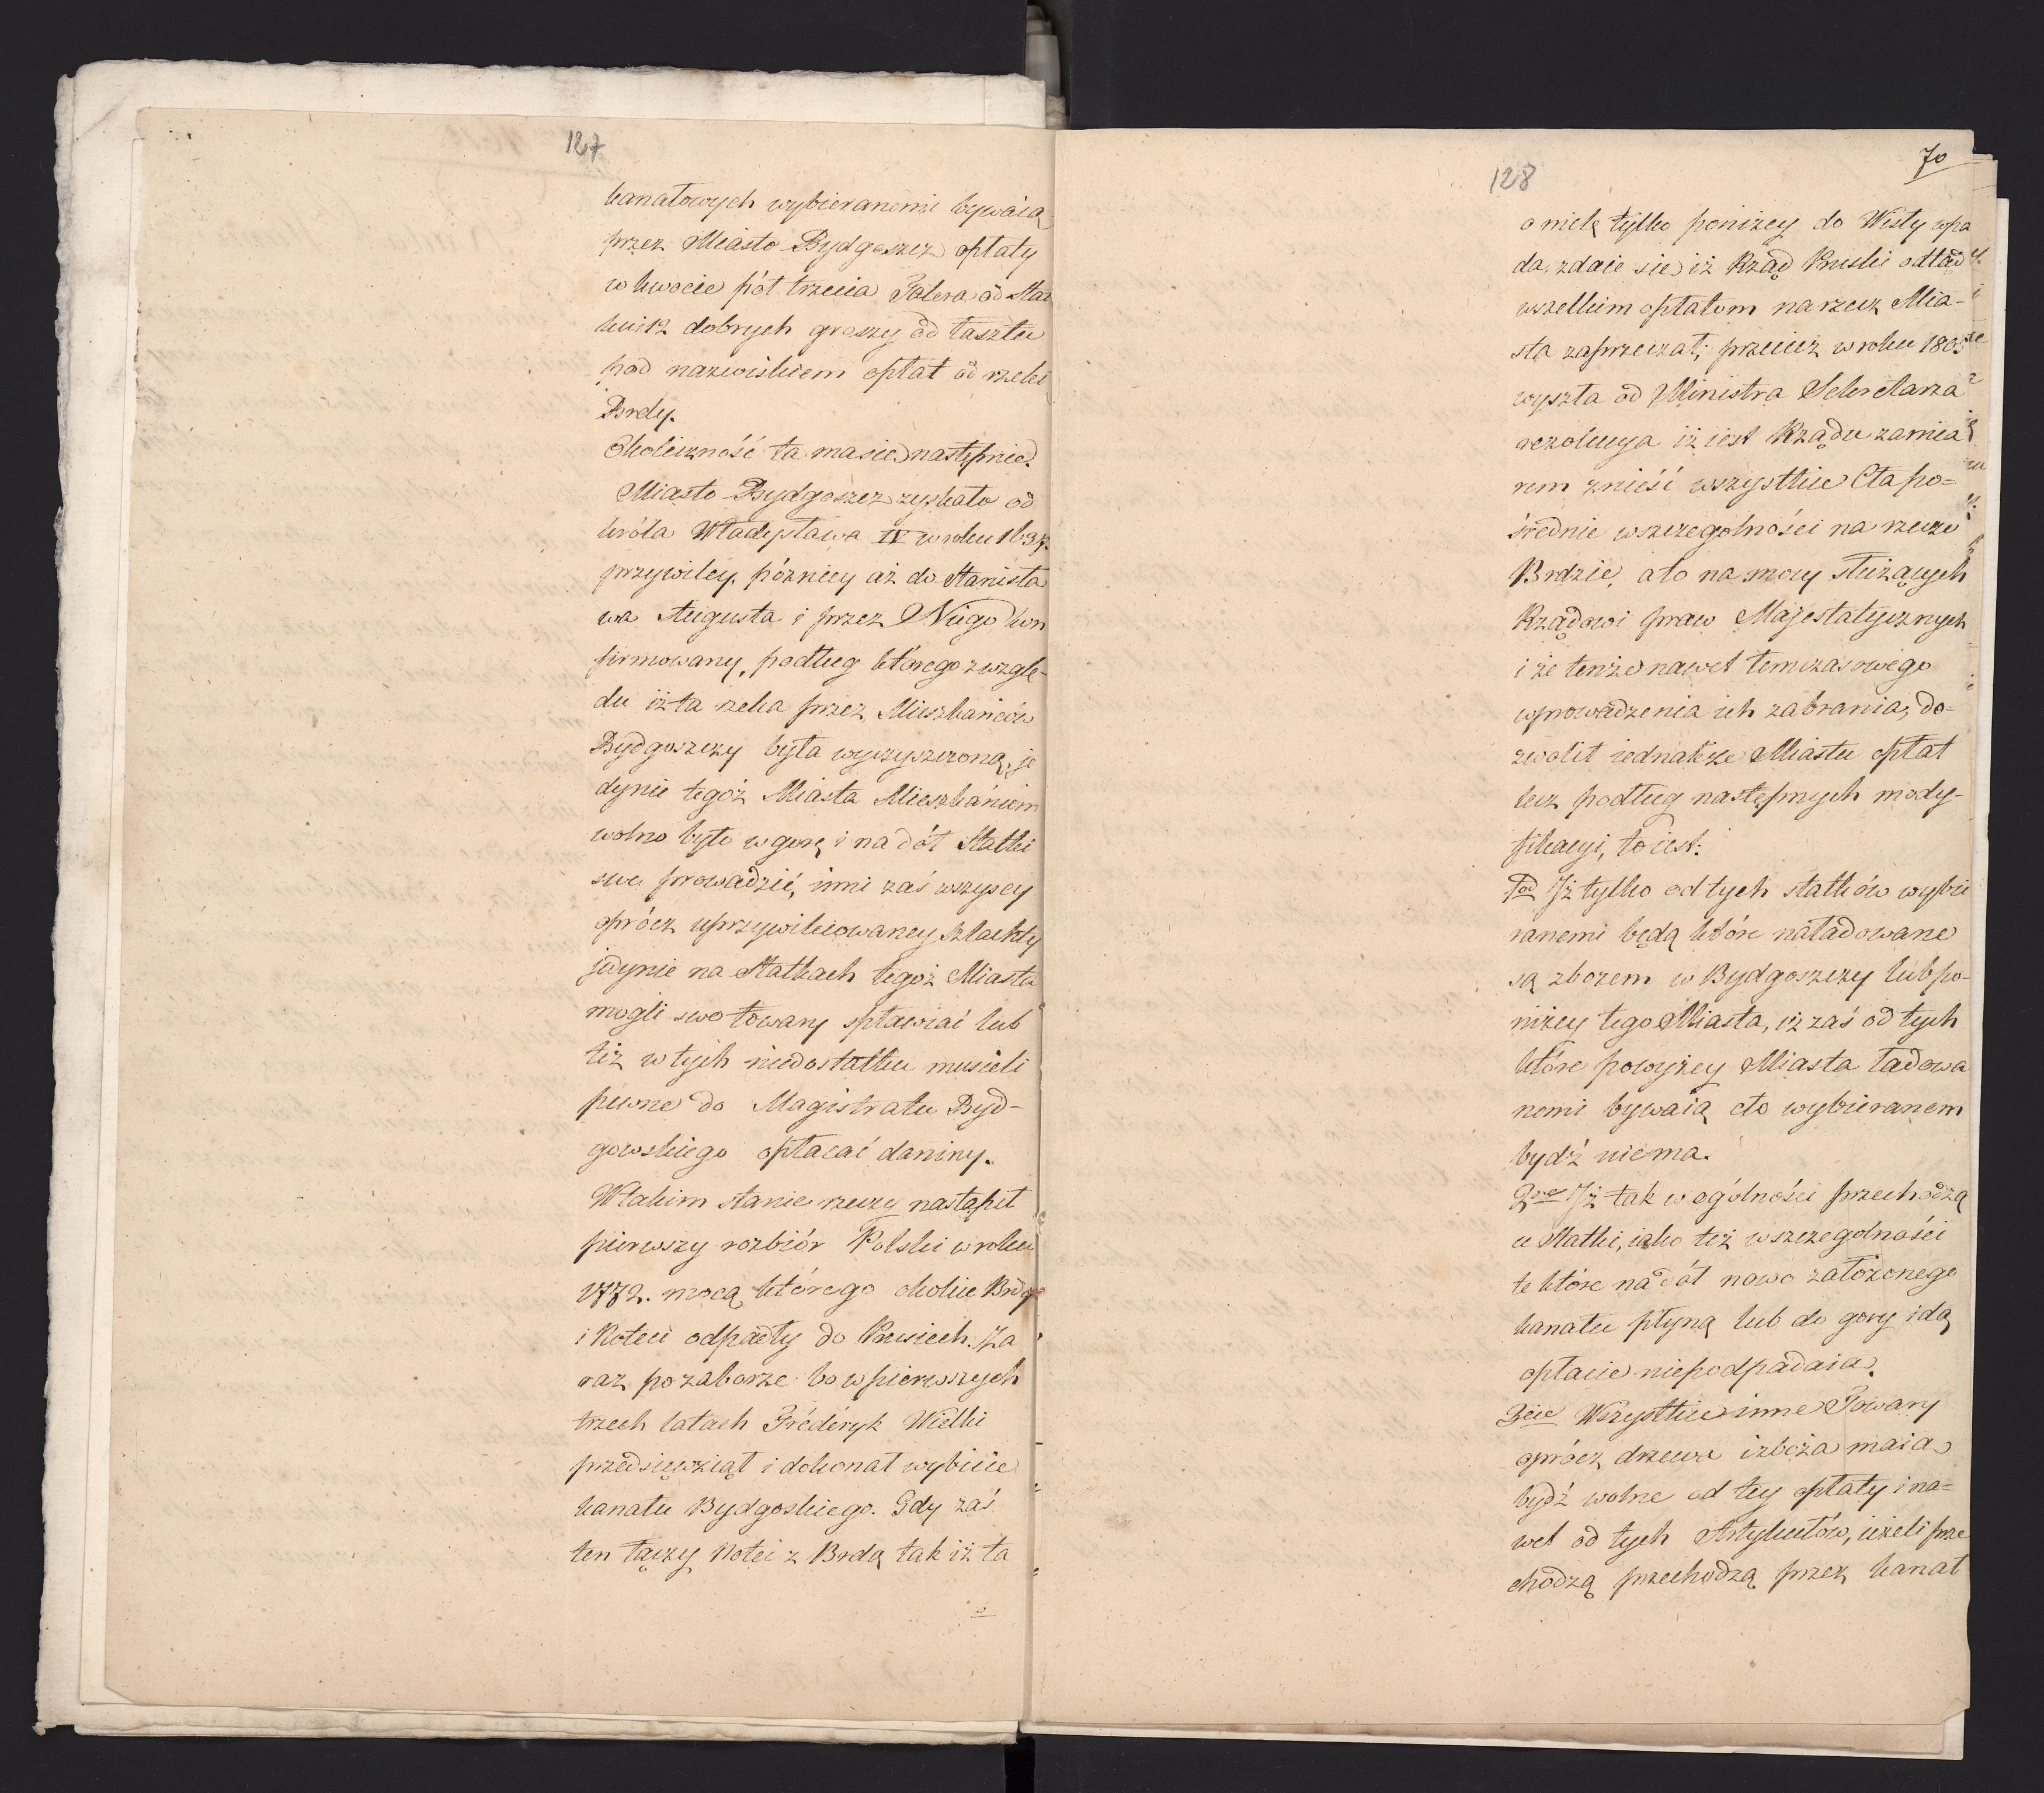 127
kanałowych wybieranemi bywaią
przez Miasto Bydgoszcz opłaty
w kwocie pół trzecia Talera od Stat
ku i 12 dobrych groszy od łasztu
pod nazwiskiem opłat od rzeki
Brdy.
Okoliczność ta ma się następnie.
Miasto Bydgoszcz zyskało od
króla Władysława IV w roku 1637.
przywiley, późniey aż do Stanisła
wa Augusta i przez Niego kon
firmowany, podług którego z wzglę-
du iż ta rzeka przez Mieszkańców
Bydgoszczy była wyczyszczoną, je
dynie tegoż Miasta Mieszkańcom
wolno było w gorę i na dół Statki
swe prowadzić, inni zaś wszyscy
oprócz uprzywileiowaney Szlachty
jedynie na Statkach tegoż Miasta
mogli swe towary spławiać lub
też w tych niedostatku musieli
pewne do Magistratu Byd-
gowskiego opłacać daniny.
W takim stanie rzeczy nastąpił
pierwszy rozbiór Polski w roku
1772. mocą którego okolice Brdy
i Noteci odpadły do Prusiech. Za
raz po zaborze bo w pierwszych
trzech latach Fréderyk Wielki
przedsięwziął i dokonał wybicie
kanału Bydgoskiego. Gdy zaś
ten łączy Noteć z Brdą tak iż ta
70
128
o milę tylko poniżey do Wisły wpa
da, zdaie się iż Rząd Pruski odtąd
wszelkim opłatom na rzecz Mia-
sta zaprzeczał; przecież w roku 1805
wyszła od Ministra Sekretarza
rezolucya iż iest Rządu zamia
rem znieść wszystkie Cła po=
średnie w szczegolności na rzece
Brdzie, a to na mocy służących
Rządowi praw Majestatycznych
i że tenże nawet temczasowego
wprowadzenia ich zabrania, do-
zwolił iednakże Miastu opłat
lecz podług następnych mody-
fikacyi, to iest:
1od Iż tylko od tych statków wybie
ranemi będą które naładowane
są zbożem w Bydgoszczy lub po-
niżey tego Miasta, iż zaś od tych
które powyżey Miasta ładowa
nemi bywaią cło wybieranem
bydź nie ma.
2re Iż tak w ogólności przechodzą
ce Statki, iako też w szczegolności
te które na dół nowo założonego
kanału płyną lub do gory idą
opłacie niepodpadaią.
3cie Wszystkie inne Towary
oprócz drzewa i zboża maią
bydź wolne od tey opłaty i na=
wet od tych Artykułów, ieżeli prze
chodzą przechodzą przez kanał